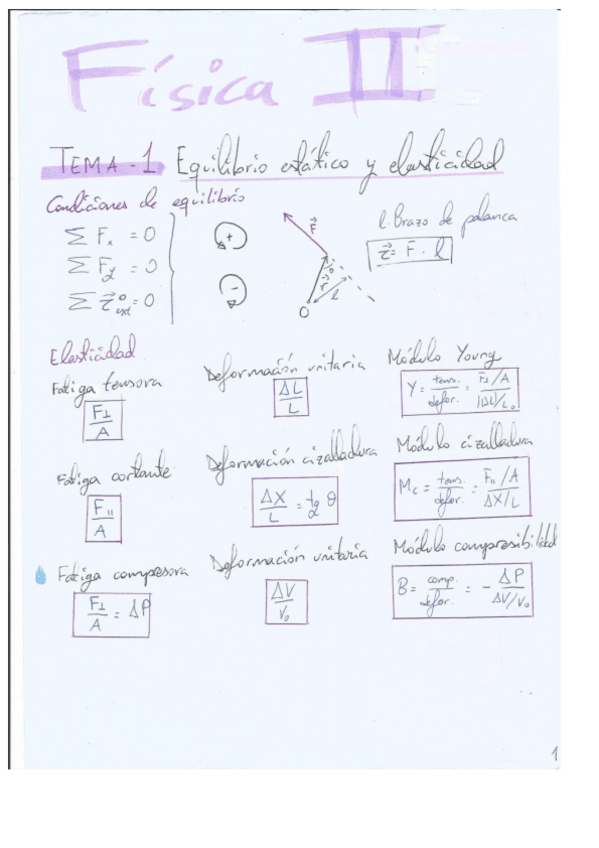 Física II
TEMA-1 Equilibrio estático y elasticidad
Condiciones de equilibrio
Σ Fx = 0
Σ Fy = 0
Σ τ⃗ext° = 0
+
-
F⃗
r⃗
l
O
l: Brazo de palanca
τ⃗ = F · l
Elasticidad
Fatiga tensora
F⊥/A
Deformación unitaria
ΔL/L
Módulo Young
Y = tens./defor. = F⊥/A / |ΔL|/L₀
Fatiga cortante
F||/A
Deformación cizalladura
ΔX/L = tg θ
Módulo cizalladura
Mc = tens./defor. = F||/A / ΔX/L
Fatiga compresora
F⊥/A = ΔP
Deformación unitaria
ΔV/V₀
Módulo compresibilidad
B = comp./defor. = - ΔP / ΔV/V₀
1